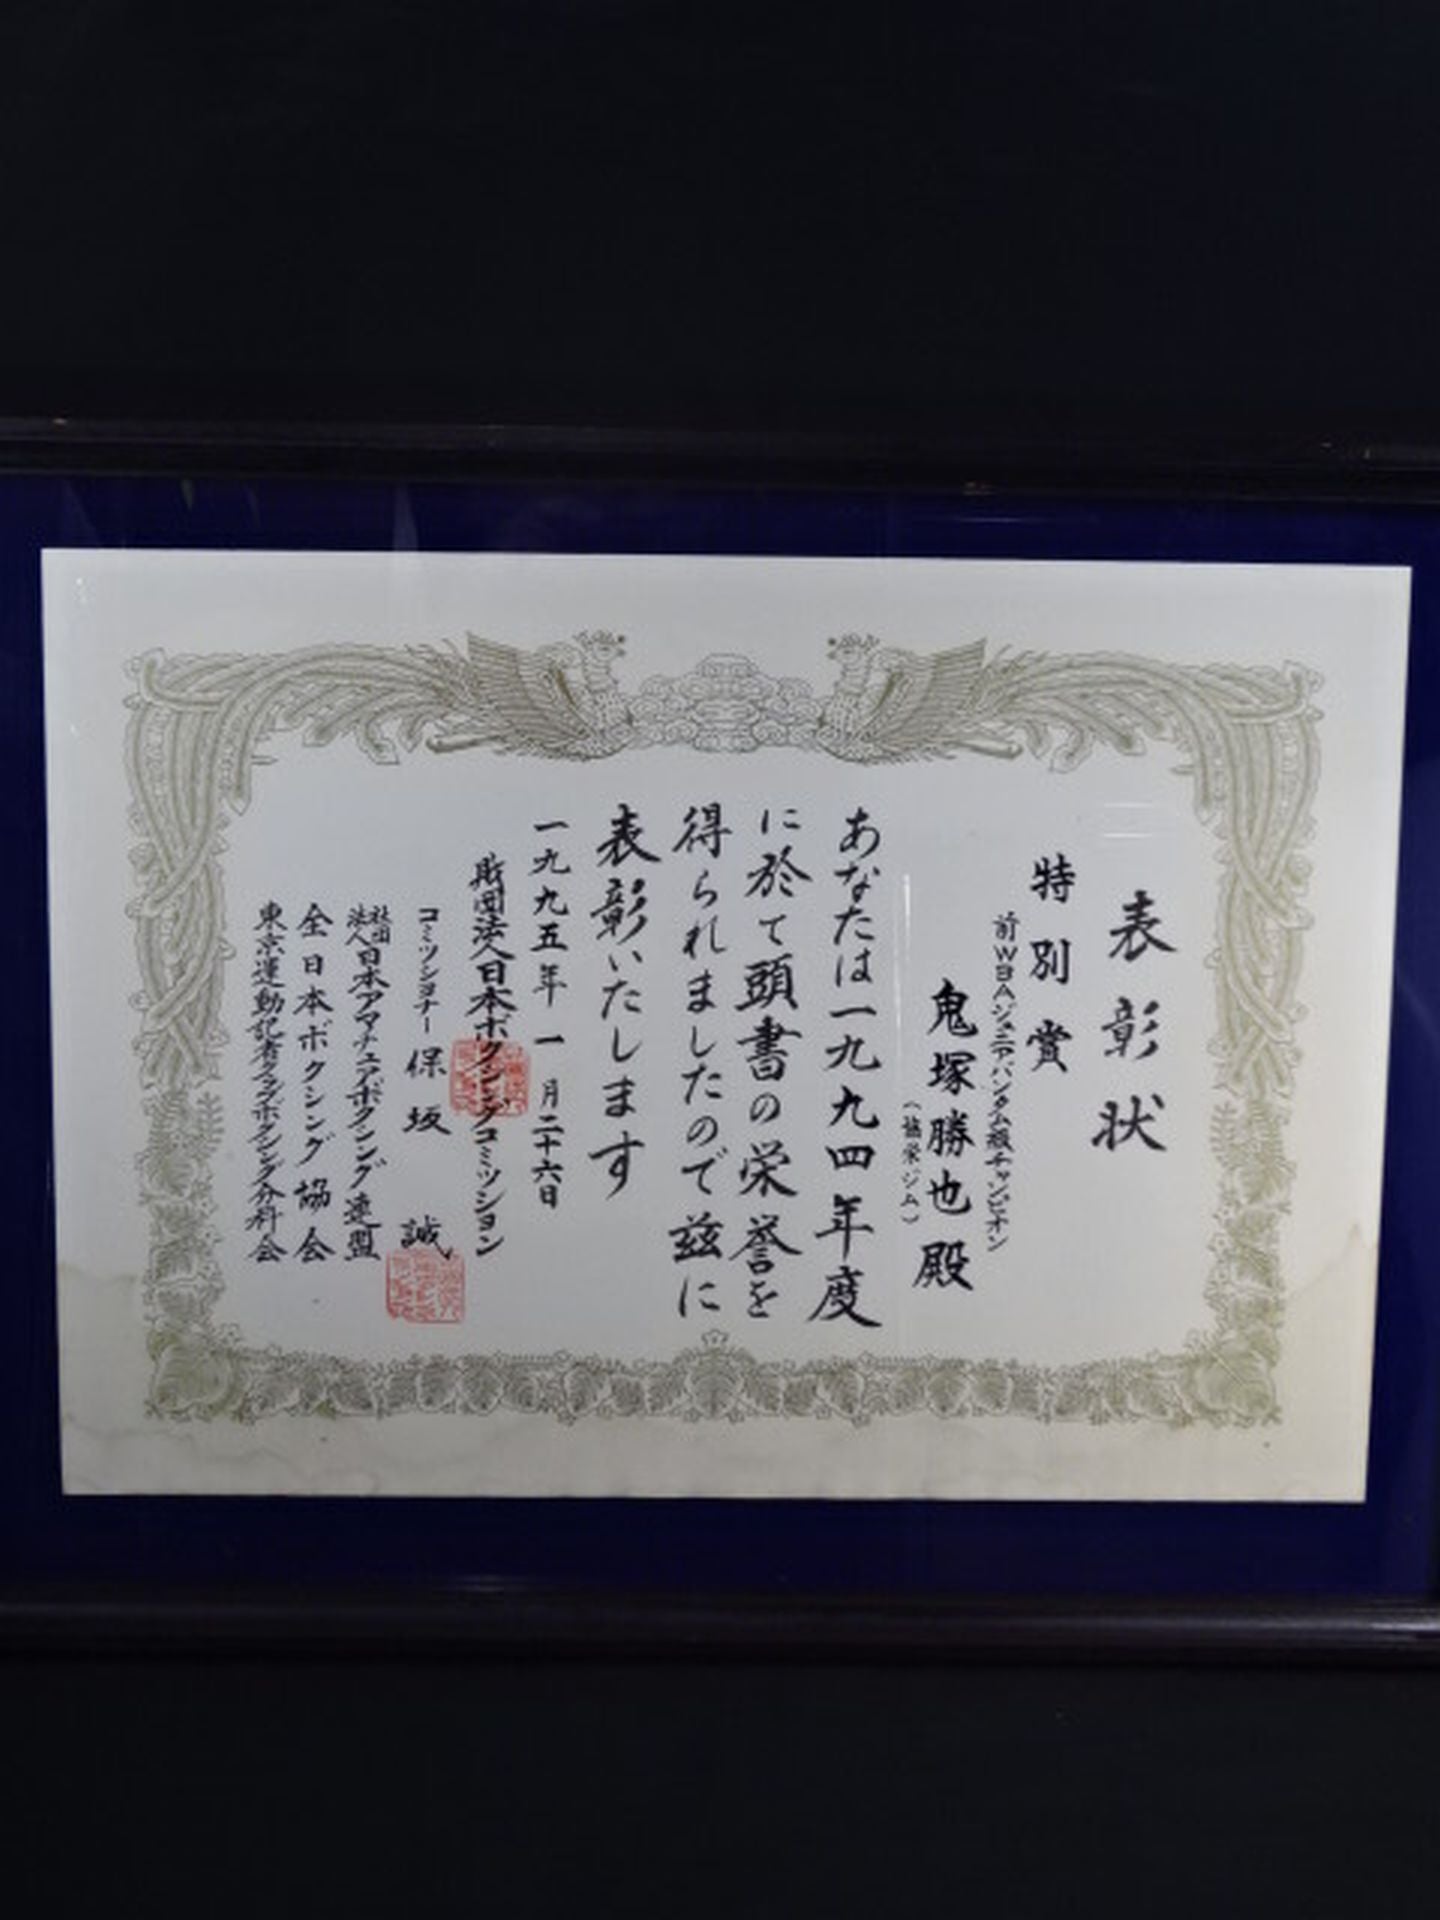 表彰状
特別賞
前WBAジュニアバンタム級チャンピオン
鬼塚勝也殿
(協栄ジム)
あなたは一九九四年度
に於て頭書の栄誉を
得られましたので茲に
表彰いたします
一九九五年一月二十六日
財団法人日本ボクシングコミッション
コミッショナー 保坂 誠
社団法人日本アマチュアボクシング連盟
全日本ボクシング協会
東京運動記者クラブボクシング分科会